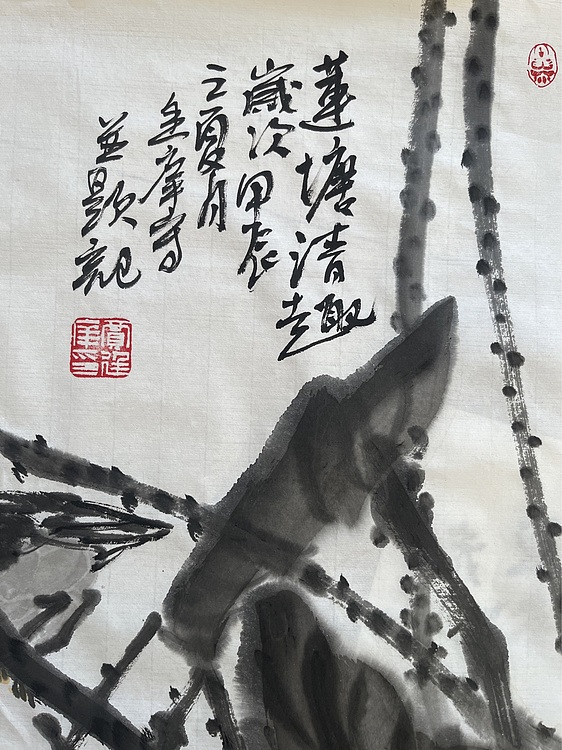 蓮塘清趣
歲次甲辰
之夏月
並題記